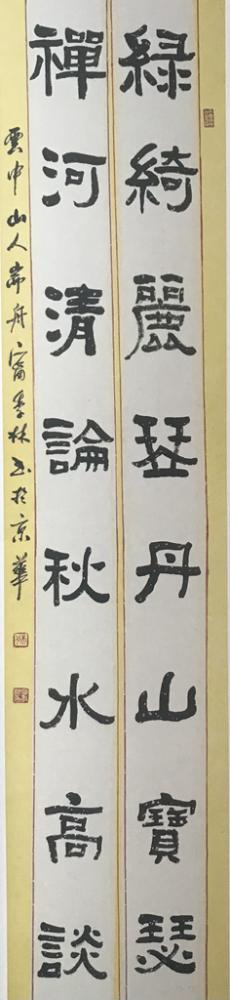 緑綺麗琴丹山寶瑟
禪河清論秋水高談
雲中山人舟甯季林书於京華